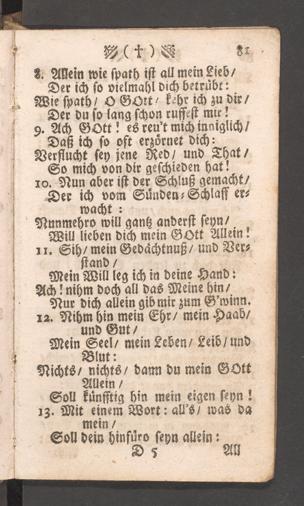 (†) 81
8. Allein wie spath ist all mein Lieb/
Der ich so vielmahl dich betrübt:
Wie spath/ O GOtt/ kehr ich zu dir/
Der du so lang schon ruffest mir!
9. Ach GOtt! es reu't mich inniglich/
Daß ich so oft erzörnet dich:
Verflucht sey jene Red/ und That/
So mich von dir geschieden hat!
10. Nun aber ist der Schluß gemacht/
Der ich vom Sünden-Schlaff er-
wacht:
Nunmehro will gantz anderst seyn/
Will lieben dich mein GOtt Allein!
11. Sih/ mein Gedächtnuß/ und Ver-
stand/
Mein Will leg ich in deine Hand:
Ach! nihm doch all das Meine hin/
Nur dich allein gib mir zum G'winn.
12. Nihm hin mein Ehr/ mein Haab/
und Gut/
Mein Seel/ mein Leben/ Leib/ und
Blut:
Nichts/ nichts/ dann du mein GOtt
Allein/
Soll künfftig hin mein eigen seyn!
13. Mit einem Wort: all's/ was da
mein/
Soll dein hinfüro seyn allein:
D 5 All